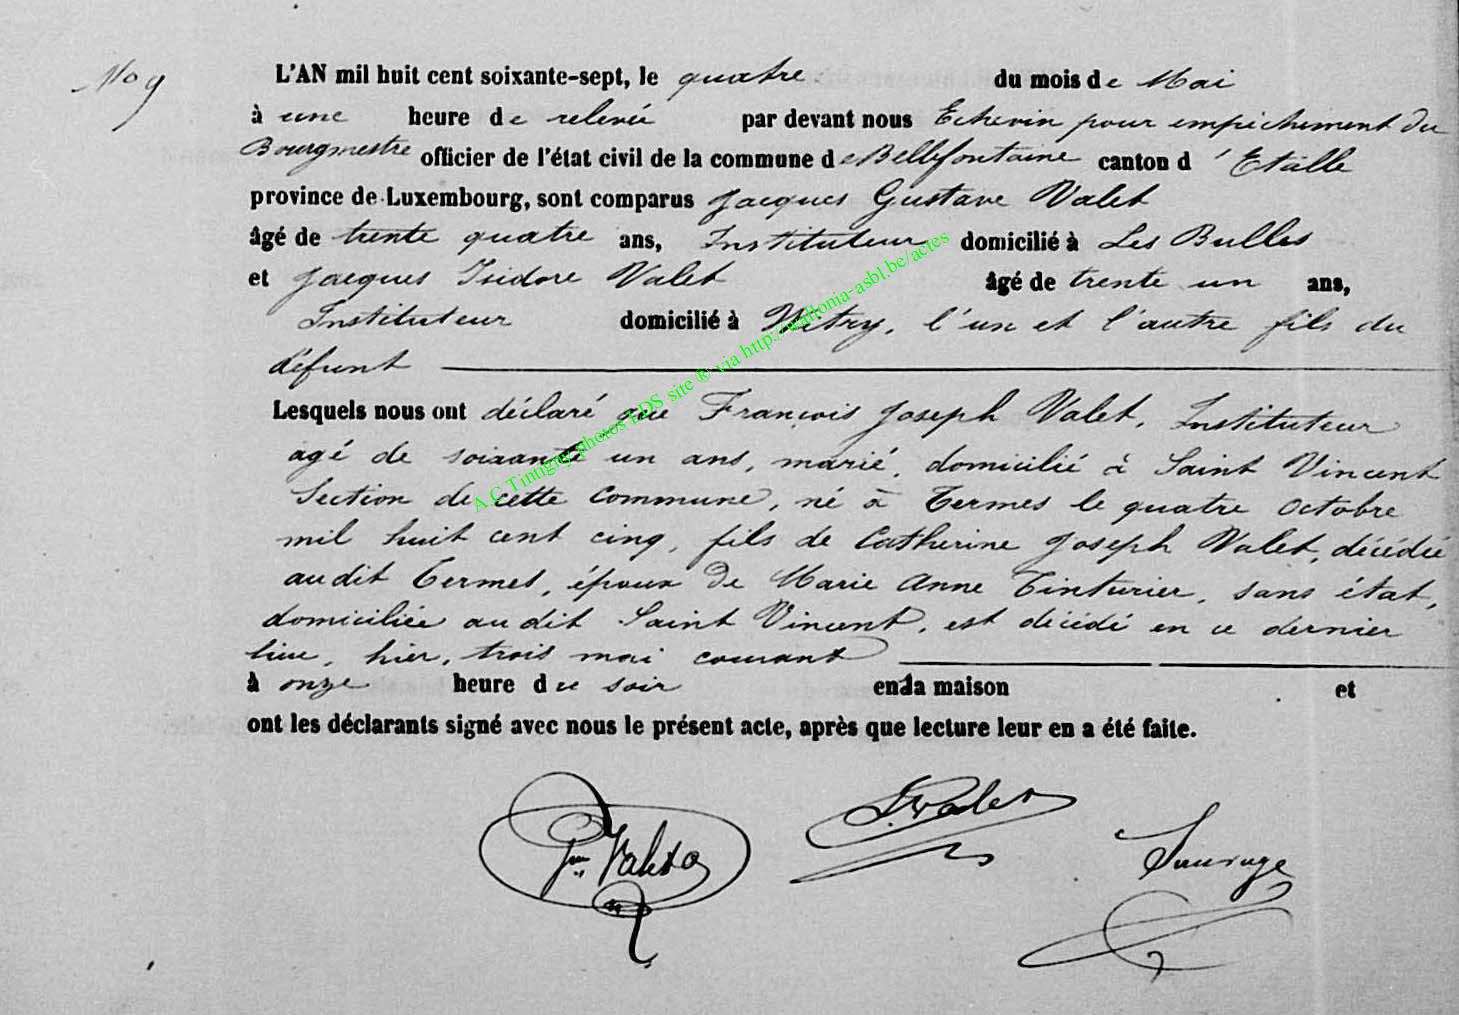 No 9
L'AN mil huit cent soixante-sept, le quatre du mois de Mai
à une heure de relevée par devant nous Echevin pour empêchement du
Bourgmestre officier de l'état civil de la commune de Bellefontaine canton d'Etalle
province de Luxembourg, sont comparus Jacques Gustave Valet
âgé de trente quatre ans, Instituteur domicilié à Les Bulles
et Jacques Isidore Valet âgé de trente un ans,
Instituteur domicilié à Witry, l'un et l'autre fils du
défunt
Lesquels nous ont déclaré que François Joseph Valet, Instituteur
agé de soixante un ans, marié, domicilié à Saint Vincent
Section de cette commune, né à Termes le quatre Octobre
mil huit cent cinq, fils de Catherine Joseph Valet, décédée
audit Termes, époux de Marie Anne Tinturier, sans état,
domiciliée audit Saint Vincent, est décédé en ce dernier
lieu, hier, trois mai courant
à onze heure du soir en la maison et
ont les déclarants signé avec nous le présent acte, après que lecture leur en a été faite.
Valet
Valet
Sauvage
A.C Tintigny photos EDS site ® via http://wallonia-asbl.be/actes